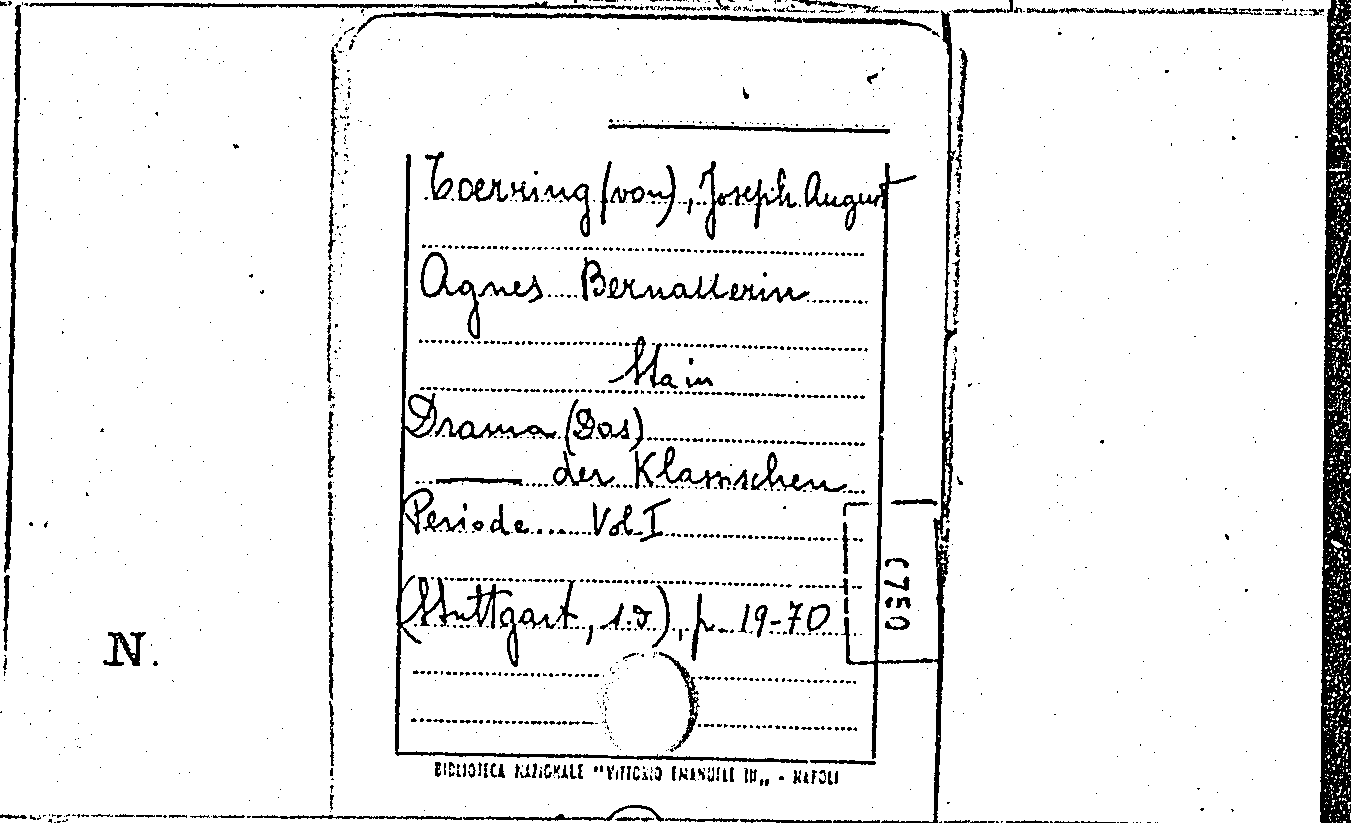 Toerring (von), Joseph August
Agnes Bernauerin
Stain
Drama (Das)
—— der Klassischen
Periode... Vol. I
(Stuttgart, s.d), p. 19-70
0750
N.
BIBLIOTECA NAZIONALE "VITTORIO EMANUELE III„ - NAPOLI